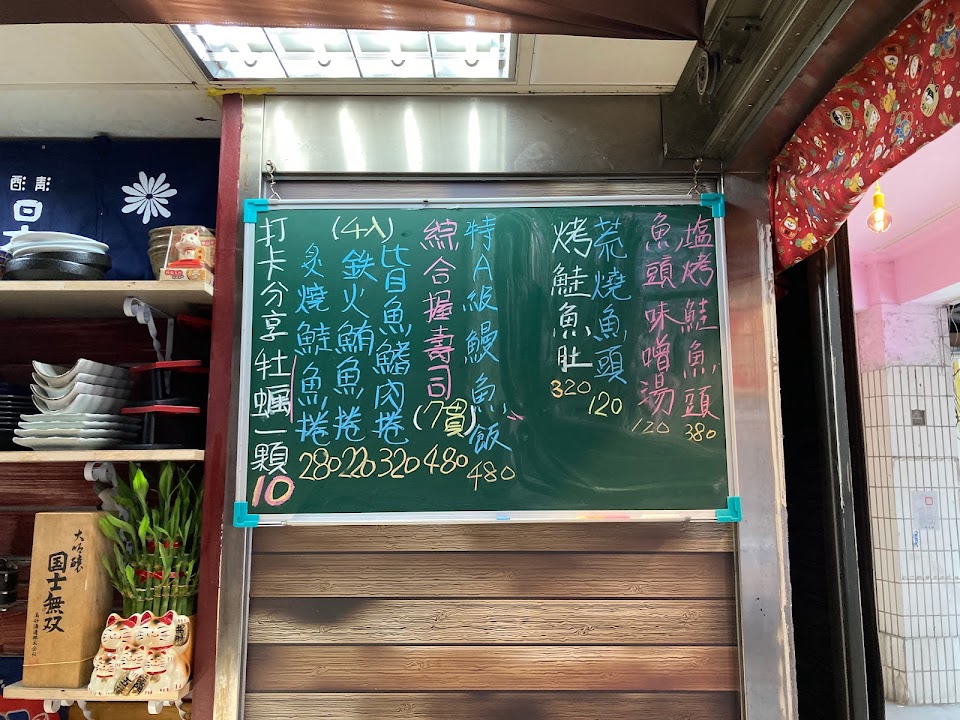 塩烤鮭魚頭
380
魚頭味噌湯
120
荒燒魚頭
120
烤鮭魚肚
320
特A級鰻魚飯
480
綜合握壽司(7貫)
480
(4入)
皆魚鰭肉捲
320
鉄火鮪魚捲
220
炙燒鮭魚捲
280
打卡分享牡蠣一顆
10
大吟醸
国士無双